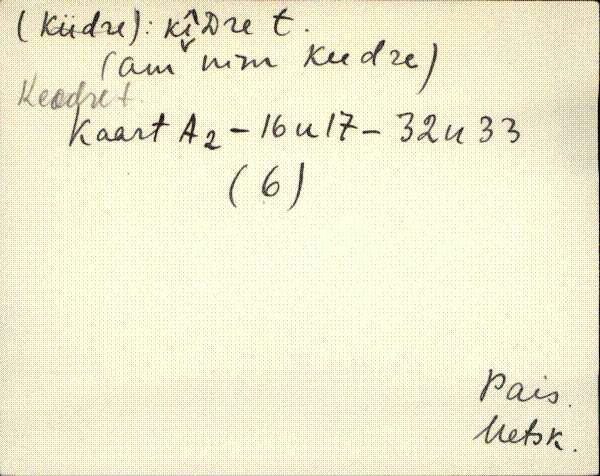 (Küdre): kî̬Dre t.
(am nim Kudre)
Keodre t.
Kaart A2 - 16 u 17 - 32 u 33
(6)
Pais.
Metsk.